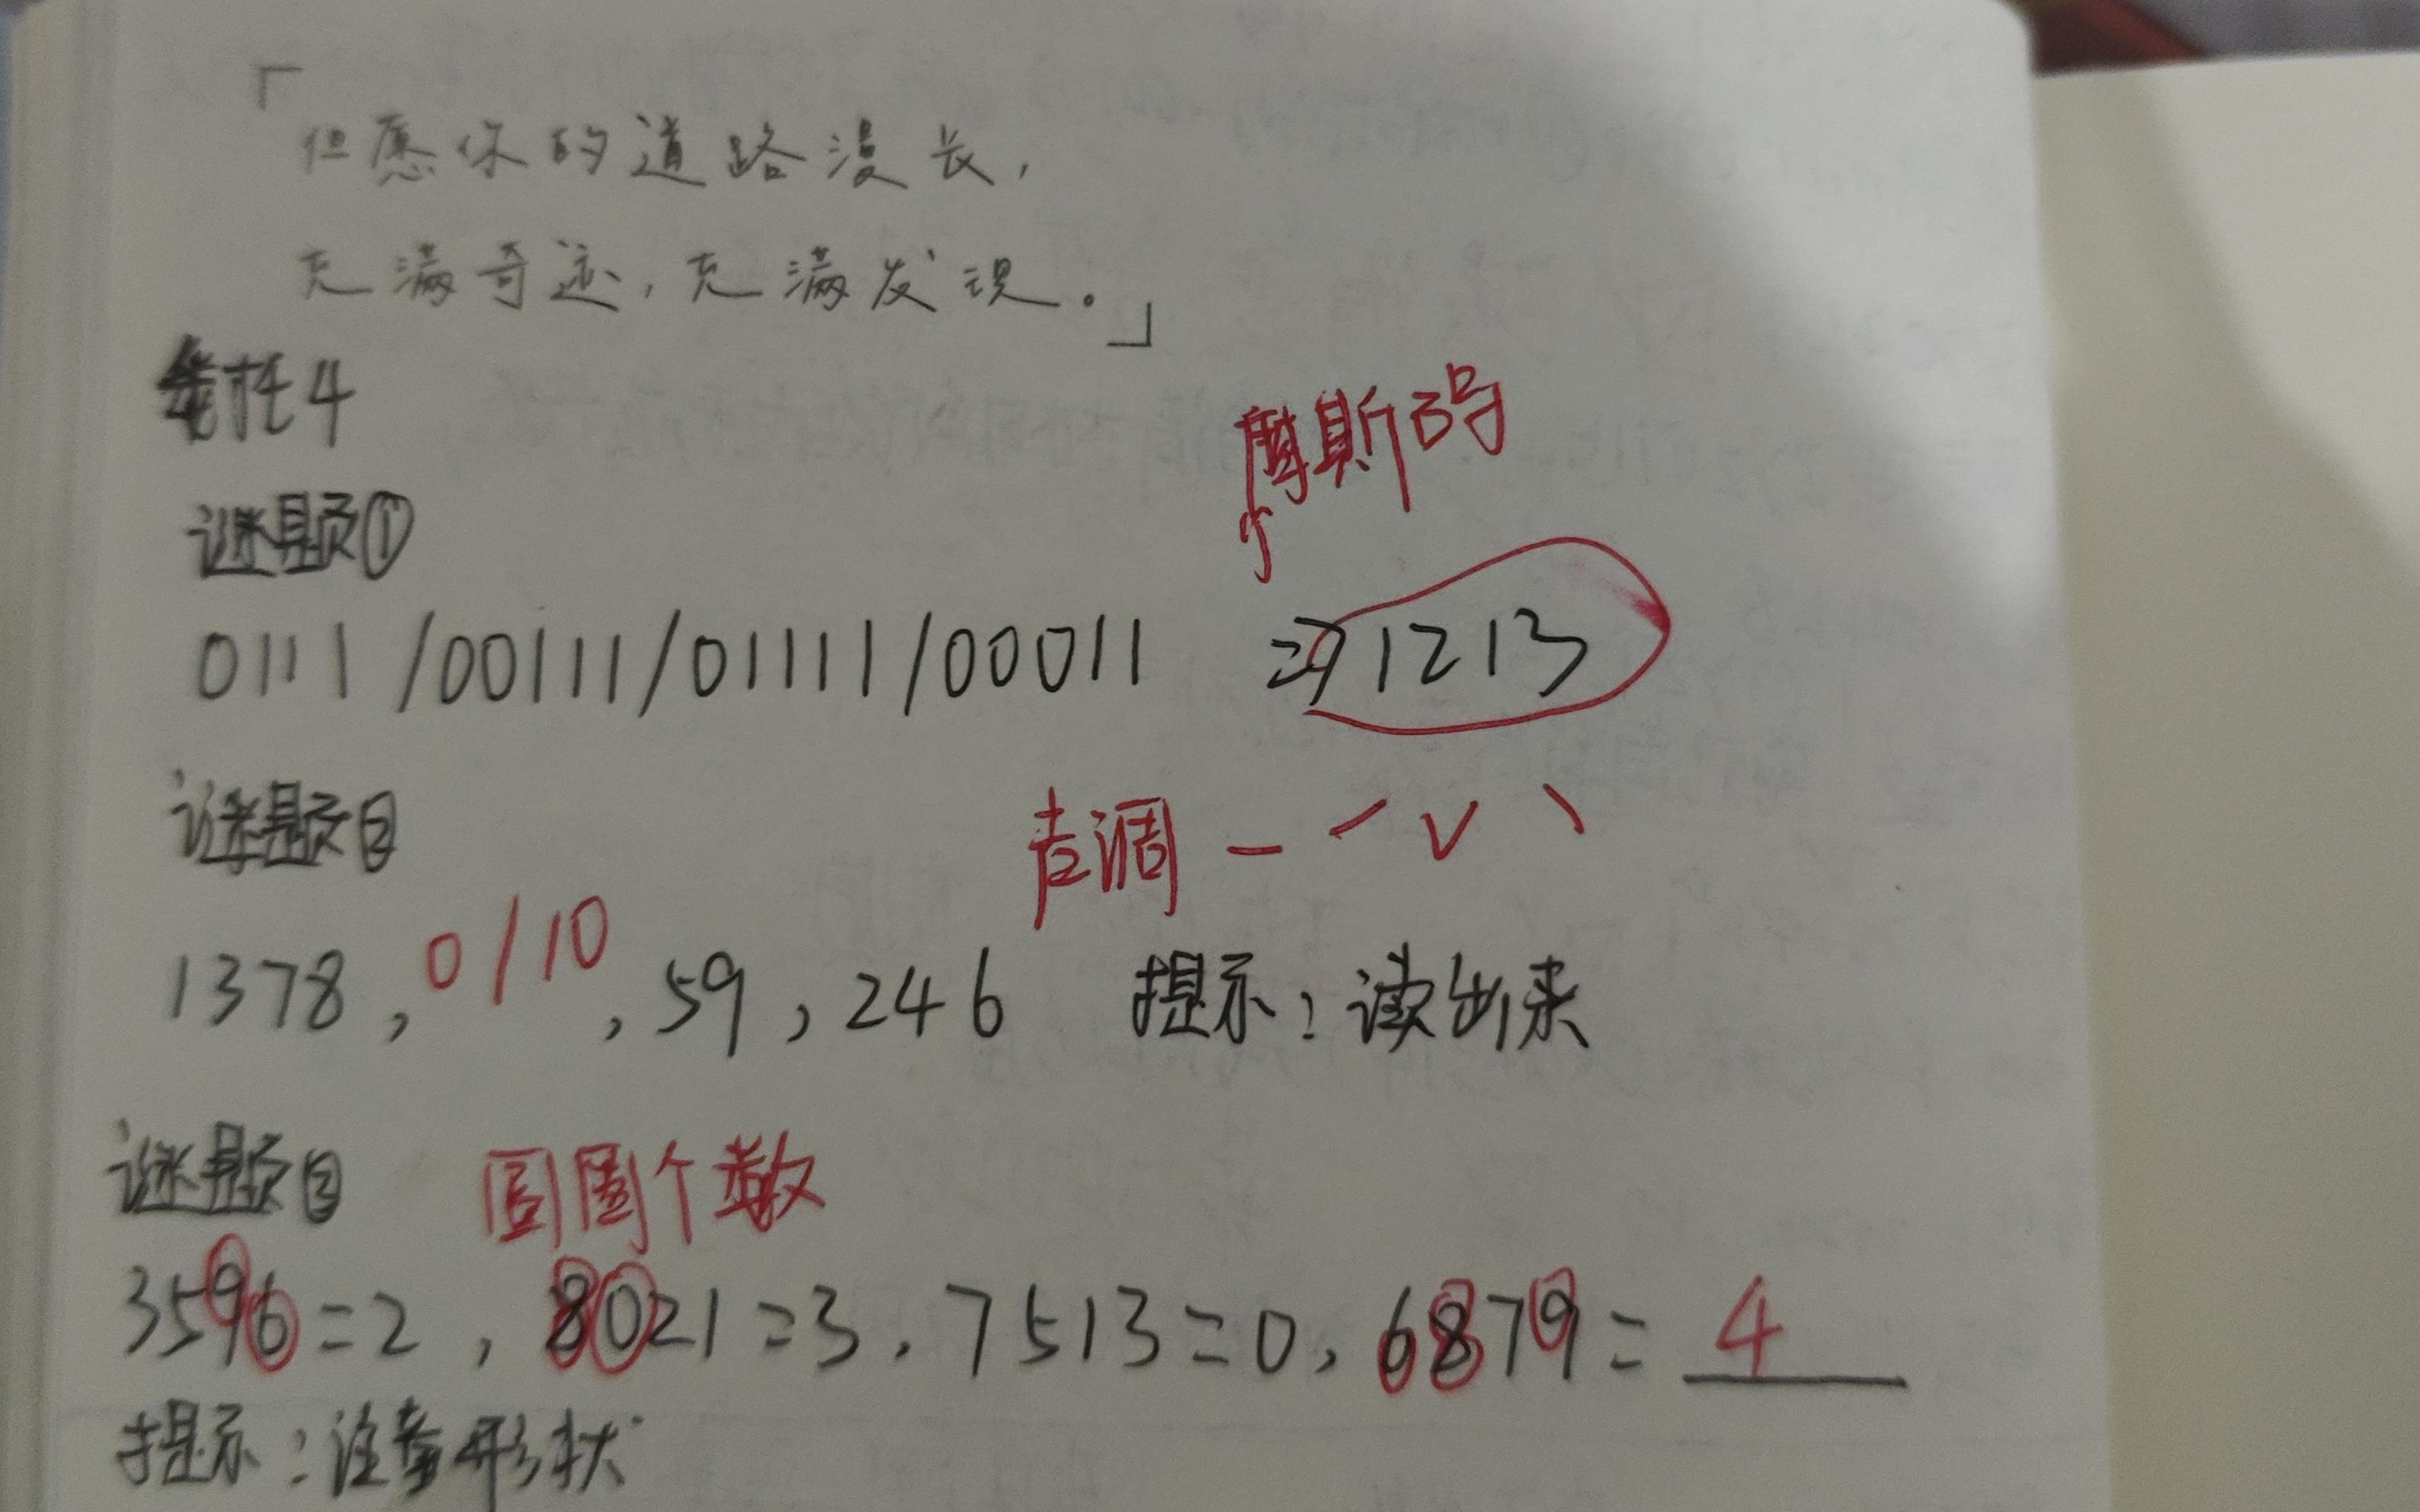 「
但愿你的道路漫长，
充满奇迹，充满发现。」
委托4
摩斯码
谜题①
0111/00111/01111/00011 => 1213
谜题②
声调 — ˊ ˇ ˋ
1378，0/10，59，246 提示：读出来
谜题③ 圆圈个数
3596=2，8021=3，7513=0，6879=4
提示：注意形状